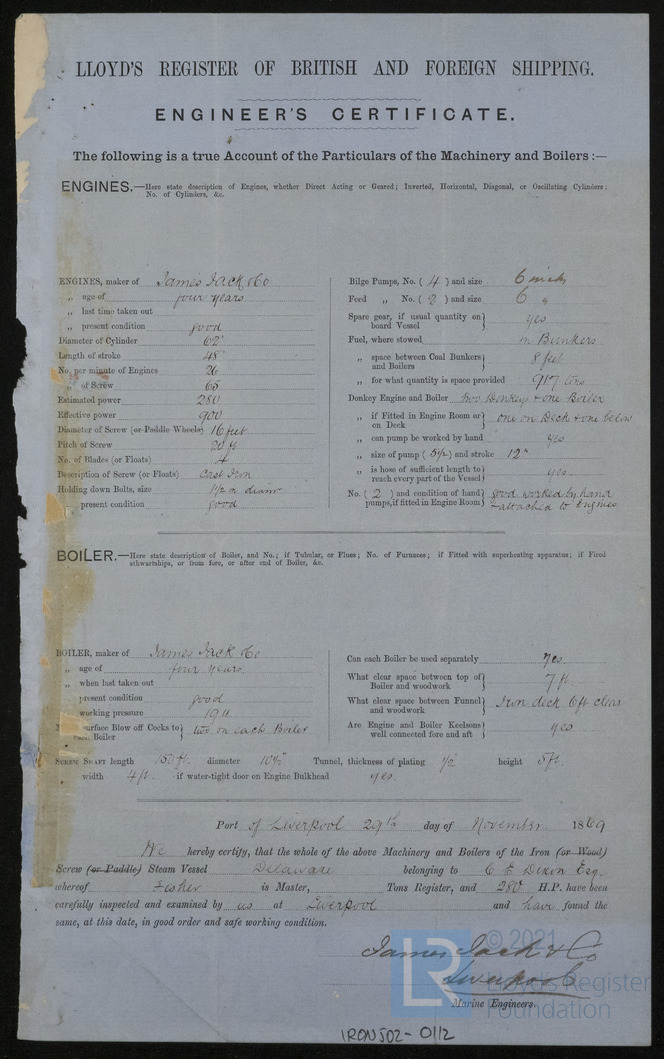 LLOYD'S REGISTER OF BRITISH AND FOREIGN SHIPPING.
ENGINEER'S CERTIFICATE.
The following is a true Account of the Particulars of the Machinery and Boilers :—
ENGINES.—Here state description of Engines, whether Direct Acting or Geared; Inverted, Horizontal, Diagonal, or Oscillating Cylinders;
No. of Cylinders, &c.
ENGINES, maker of James Jack & Co
„ age of four years
„ last time taken out
„ present condition good
Diameter of Cylinder 62"
Length of stroke 48"
No. per minute of Engines 26
„ of Screw 65
Estimated power 280
Effective power 900
Diameter of Screw (or Paddle Wheels) 16 feet
Pitch of Screw 20 ft
No. of Blades (or Floats) 4
Description of Screw (or Floats) Cast Iron
Holding down Bolts, size 1½ in diamr
„ present condition good
Bilge Pumps, No. ( 4 ) and size 6 inch
Feed „ No. ( 2 ) and size 6 "
Spare gear, if usual quantity on
board Vessel } yes
Fuel, where stowed in Bunkers
„ space between Coal Bunkers
and Boilers } 8 feet
„ for what quantity is space provided 917 tons
Donkey Engine and Boiler two Donkeys & one Boiler
„ if Fitted in Engine Room or
on Deck } one on Deck & one below
„ can pump be worked by hand yes
„ size of pump ( 5½ ) and stroke 12"
„ is hose of sufficient length to
reach every part of the Vessel } yes
No. ( 2 ) and condition of hand
pumps, if fitted in Engine Room } good worked by hand
& attached to Engines
BOILER.—Here state description of Boiler, and No.; if Tubular, or Flues; No. of Furnaces; if Fitted with superheating apparatus; if Fired
athwartships, or from fore, or after end of Boiler, &c.
BOILER, maker of James Jack & Co
„ age of four years
„ when last taken out
present condition good
working pressure
surface Blow off Cocks to
each Boiler } two on each Boiler
Can each Boiler be used separately yes.
What clear space between top of
Boiler and woodwork } 7 ft
What clear space between Funnel
and woodwork } Iron deck 6 ft clear
Are Engine and Boiler Keelsons
well connected fore and aft } yes
SCREW SHAFT length 150 ft. diameter 10½" Tunnel, thickness of plating ½ height 5 ft.
width 4 ft. if water-tight door on Engine Bulkhead yes.
Port of Liverpool 29th day of November 1869
We hereby certify, that the whole of the above Machinery and Boilers of the Iron (or Wood)
Screw (or Paddle) Steam Vessel Delaware belonging to C E Dixon Esq.
whereof Fisher is Master, Tons Register, and 280 H.P. have been
carefully inspected and examined by us at Liverpool and have found the
same, at this date, in good order and safe working condition.
James Jack & Co
Liverpool
Marine Engineers.
© 2021
LR
Lloyd's Register
Foundation
IRON502-0112